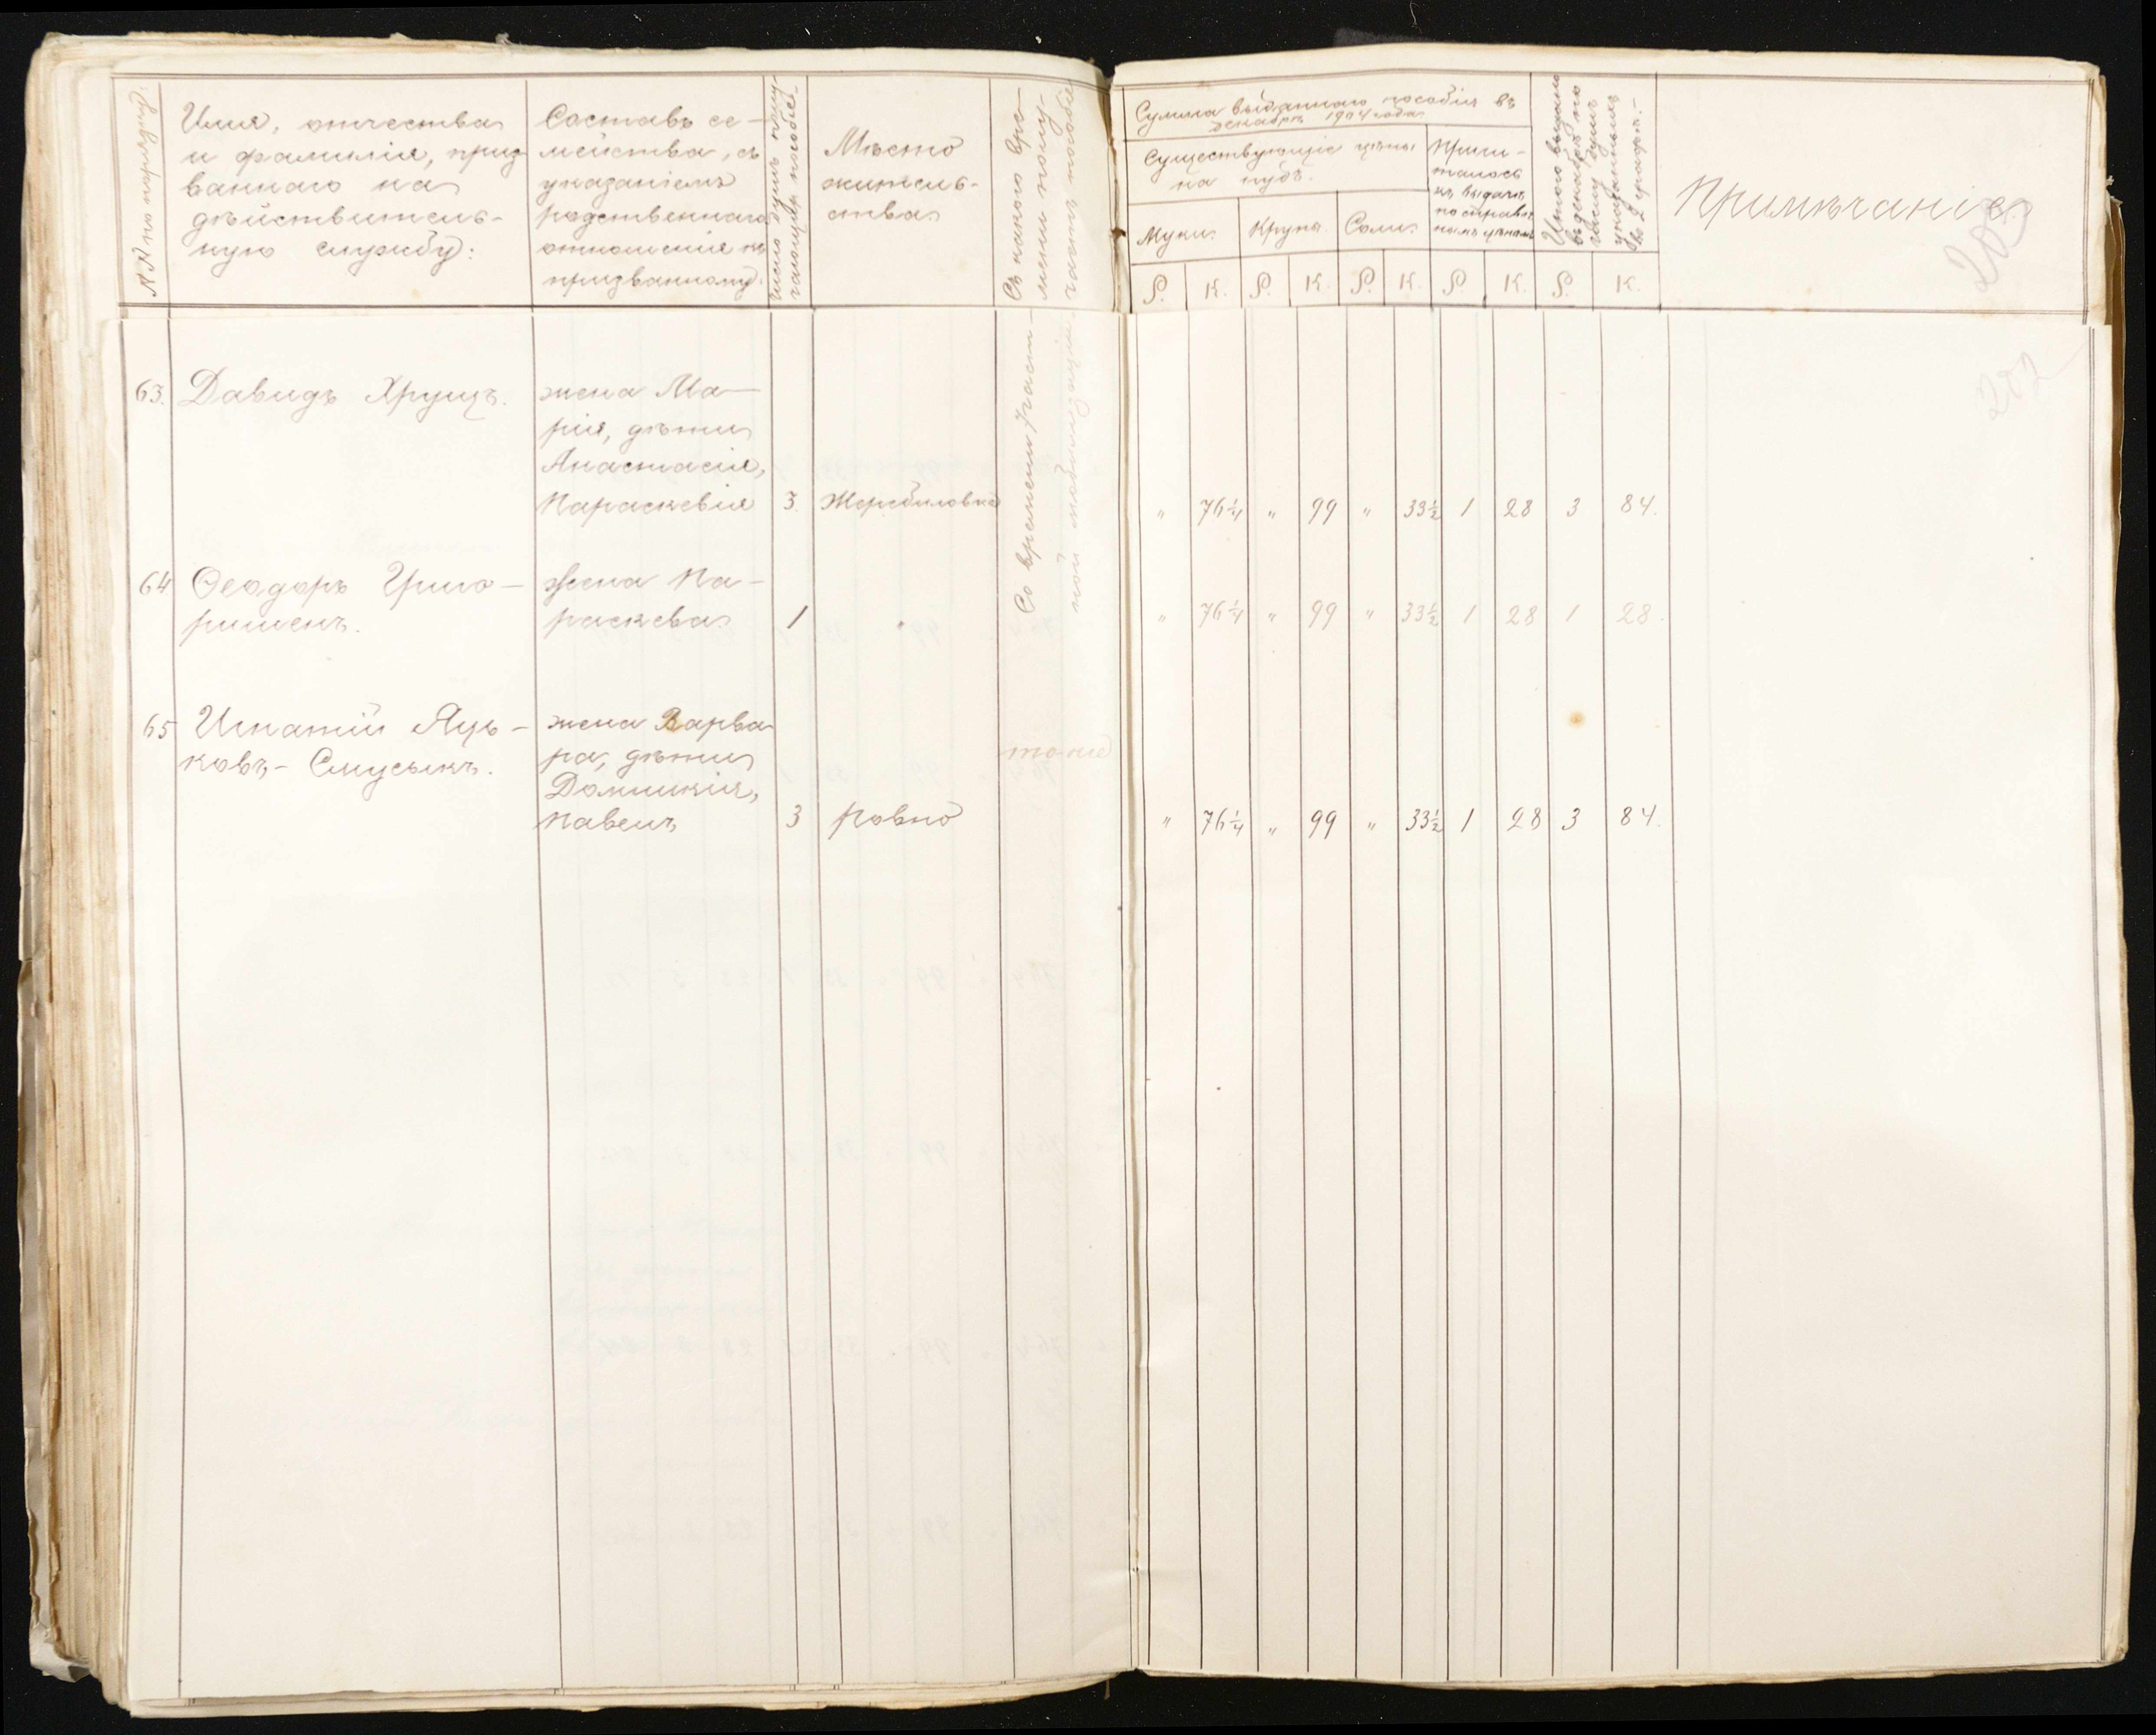 №№ по порядку.
Имя, отчества
и фамилія, приз
ваннаго на
дѣйствитель-
ную службу:
Составъ се-
мейства, съ
указаніемъ
родственнаго
отношенія къ
призванному.
Число душъ полу-
чающихъ пособіе.
Мѣсто
житель-
ства
Съ какого вре-
мени полу-
чаютъ пособіе
Сумма выданнаго пособія въ
декабрѣ 1904 года
Существующіе цѣны
на пудъ.
Муки.
Крупы
Соли.
Причи-
талось
къ выдачѣ
по справоч
нымъ цѣнамъ
Итого выдано
въ декабрѣ по
числу душъ
указаннымъ
во 2 графѣ.-
Примѣчаніе
203
Р. К. Р. К. Р. К. Р. К. Р. К.
202
63. Давидъ Хрущъ.
жена Ма-
рія, дѣти
Анастасія,
Параскевія 3. Жеребиловка
Со времени част-
ной мобилизаціи.
" 76¼ " 99 " 33½ 1 28 3 84.
64 Ѳеодоръ Григо-
ришенъ.
Жена Па-
раскева 1 "
" 76¼ " 99 " 33½ 1 28 1 28.
65 Игнатій Яць-
ковъ-Смусыкъ.
жена Варва
ра, дѣти
Доминикія,
Павелъ 3 Ровно
тоже
" 76¼ " 99 " 33½ 1 28 3 84.